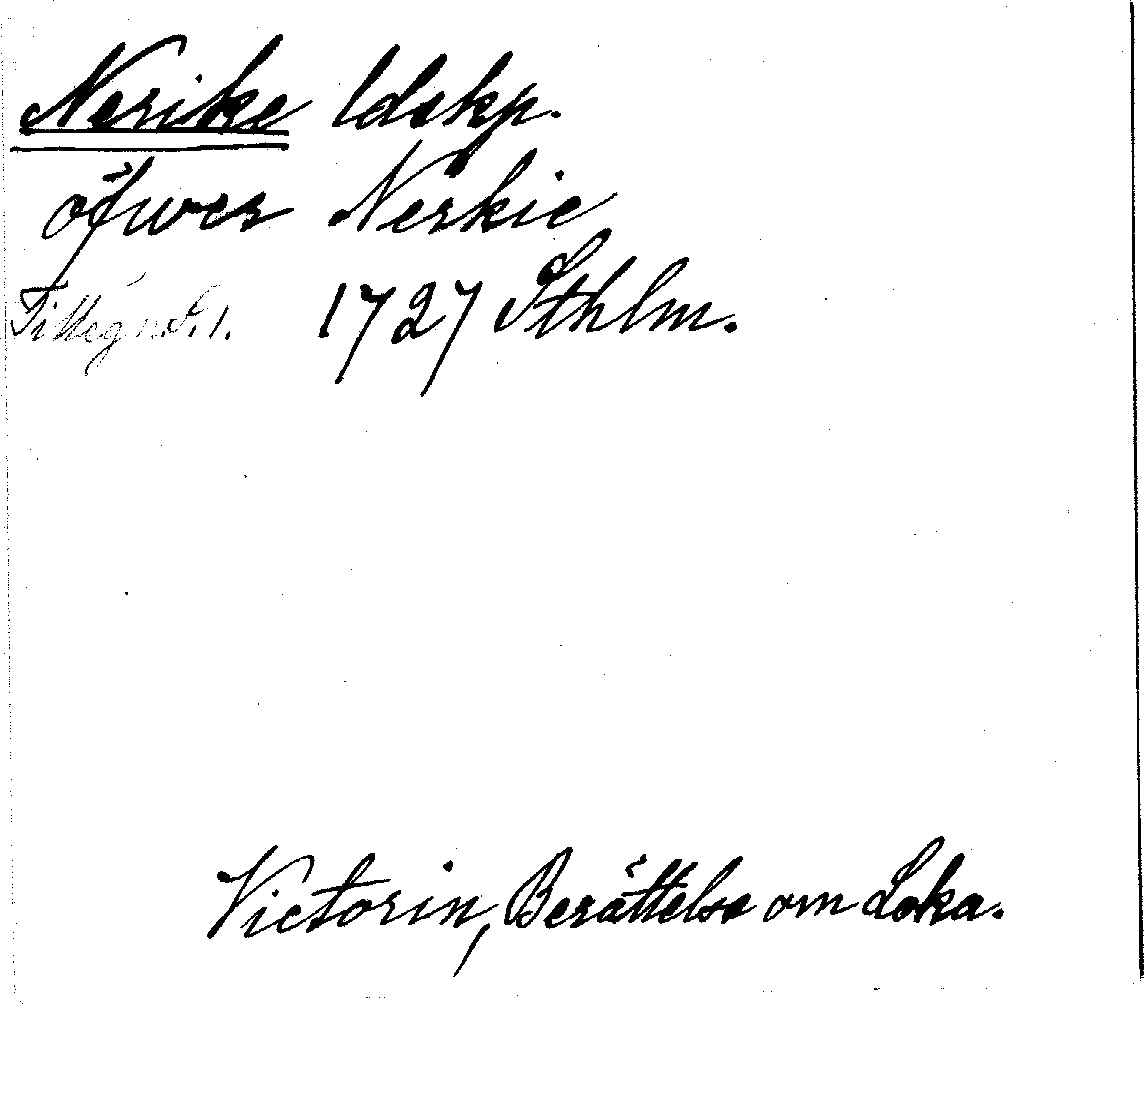 Nerike ldskp.
öfwer Nerkie
Tillegnd. s. 1. 1727 Sthlm.
Victorin, Berättelse om Loka.